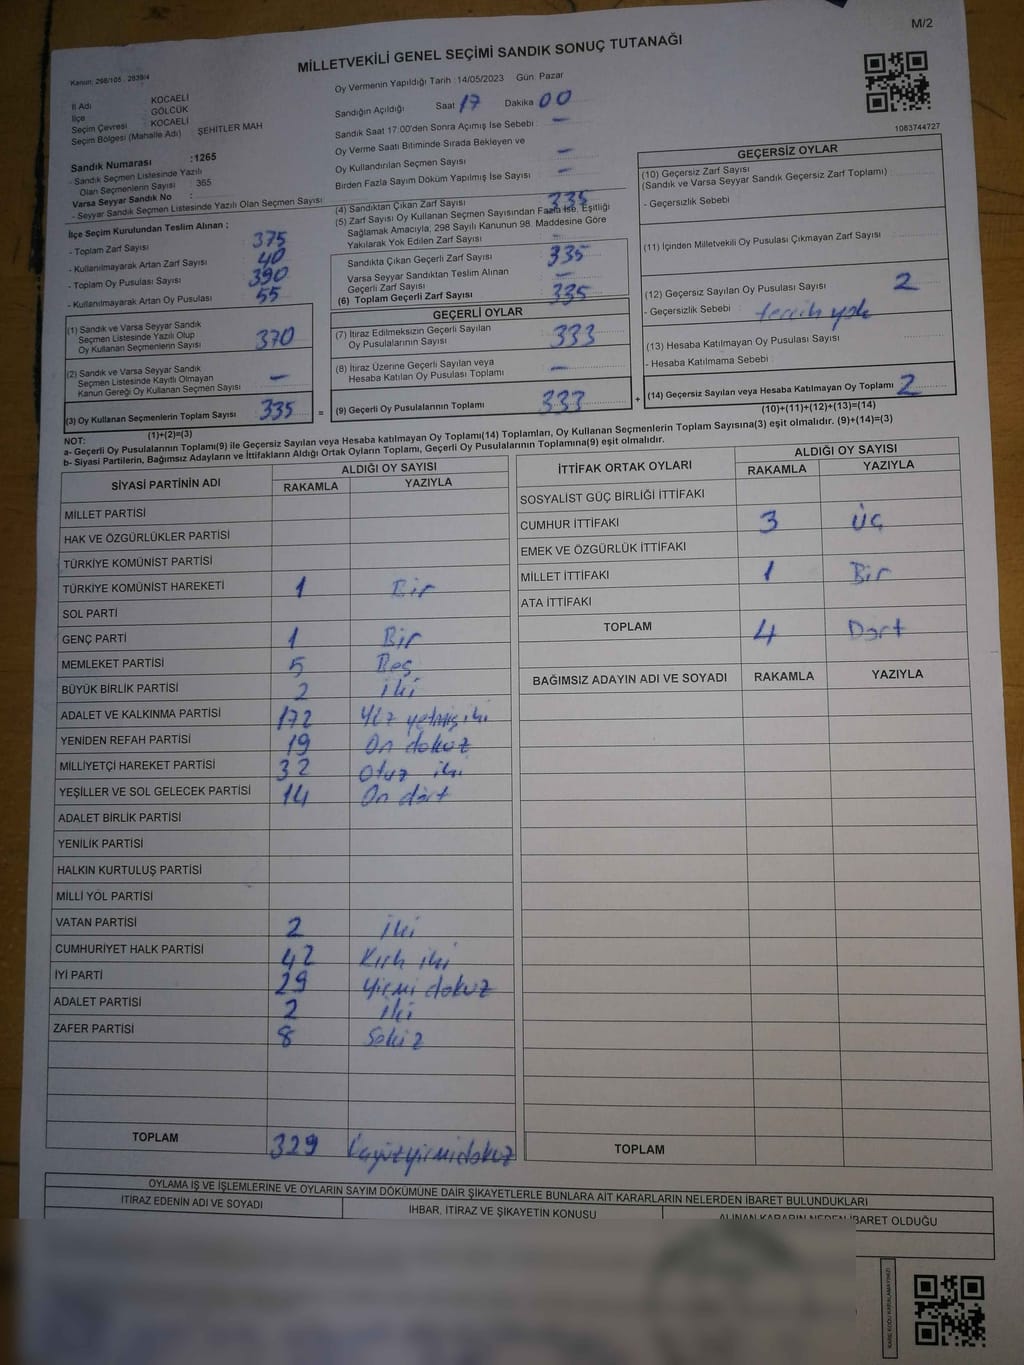 M/2
MİLLETVEKİLİ GENEL SEÇİMİ SANDIK SONUÇ TUTANAĞI
Kanun: 298/105 - 2839/4
İl Adı KOCAELİ
İlçe GÖLCÜK
Seçim Çevresi KOCAELİ
Seçim Bölgesi (Mahalle Adı) ŞEHİTLER MAH
Sandık Numarası :1265
- Sandık Seçmen Listesinde Yazılı
Olan Seçmenlerin Sayısı : 365
Varsa Seyyar Sandık No :
- Seyyar Sandık Seçmen Listesinde Yazılı Olan Seçmen Sayısı
Oy Vermenin Yapıldığı Tarih :14/05/2023 Gün: Pazar
Sandığın Açıldığı Saat 17 Dakika 00
Sandık Saat 17:00'den Sonra Açımış İse Sebebi —
Oy Verme Saati Bitiminde Sırada Bekleyen ve
Oy Kullandırılan Seçmen Sayısı —
Birden Fazla Sayım Döküm Yapılmış İse Sayısı —
1063744727
İlçe Seçim Kurulundan Teslim Alınan :
- Toplam Zarf Sayısı 375
- Kullanılmayarak Artan Zarf Sayısı 40
- Toplam Oy Pusulası Sayısı 390
- Kullanılmayarak Artan Oy Pusulası 55
(1) Sandık ve Varsa Seyyar Sandık
Seçmen Listesinde Yazılı Olup
Oy Kullanan Seçmenlerin Sayısı 370
(2) Sandık ve Varsa Seyyar Sandık
Seçmen Listesinde Kayıtlı Olmayan
Kanun Gereği Oy Kullanan Seçmen Sayısı —
(3) Oy Kullanan Seçmenlerin Toplam Sayısı 335
(1)+(2)=(3)
(4) Sandıktan Çıkan Zarf Sayısı 335
(5) Zarf Sayısı Oy Kullanan Seçmen Sayısından Fazla İse, Eşitliği
Sağlamak Amacıyla, 298 Sayılı Kanunun 98. Maddesine Göre
Yakılarak Yok Edilen Zarf Sayısı —
Sandıkta Çıkan Geçerli Zarf Sayısı 335
Varsa Seyyar Sandıktan Teslim Alınan
Geçerli Zarf Sayısı —
(6) Toplam Geçerli Zarf Sayısı 335
GEÇERLİ OYLAR
(7) İtiraz Edilmeksizin Geçerli Sayılan
Oy Pusulalarının Sayısı 333
(8) İtiraz Üzerine Geçerli Sayılan veya
Hesaba Katılan Oy Pusulası Toplamı —
= (9) Geçerli Oy Pusulalarının Toplamı 333 +
GEÇERSİZ OYLAR
(10) Geçersiz Zarf Sayısı
(Sandık ve Varsa Seyyar Sandık Geçersiz Zarf Toplamı)
- Geçersizlik Sebebi
(11) İçinden Milletvekili Oy Pusulası Çıkmayan Zarf Sayısı
(12) Geçersiz Sayılan Oy Pusulası Sayısı 2
- Geçersizlik Sebebi : tercih yok
(13) Hesaba Katılmayan Oy Pusulası Sayısı
- Hesaba Katılmama Sebebi
(14) Geçersiz Sayılan veya Hesaba Katılmayan Oy Toplamı 2
(10)+(11)+(12)+(13)=(14)
NOT:
a- Geçerli Oy Pusulalarının Toplamı(9) ile Geçersiz Sayılan veya Hesaba katılmayan Oy Toplamı(14) Toplamları, Oy Kullanan Seçmenlerin Toplam Sayısına(3) eşit olmalıdır. (9)+(14)=(3)
b- Siyasi Partilerin, Bağımsız Adayların ve İttifakların Aldığı Ortak Oyların Toplamı, Geçerli Oy Pusulalarının Toplamına(9) eşit olmalıdır.
SİYASİ PARTİNİN ADI ALDIĞI OY SAYISI
RAKAMLA YAZIYLA
MİLLET PARTİSİ
HAK VE ÖZGÜRLÜKLER PARTİSİ
TÜRKİYE KOMÜNİST PARTİSİ
TÜRKİYE KOMÜNİST HAREKETİ 1 Bir
SOL PARTİ
GENÇ PARTİ 1 Bir
MEMLEKET PARTİSİ 5 Beş
BÜYÜK BİRLİK PARTİSİ 2 iki
ADALET VE KALKINMA PARTİSİ 172 Yüz yetmiş iki
YENİDEN REFAH PARTİSİ 19 On dokuz
MİLLİYETÇİ HAREKET PARTİSİ 32 Otuz iki
YEŞİLLER VE SOL GELECEK PARTİSİ 14 On dört
ADALET BİRLİK PARTİSİ
YENİLİK PARTİSİ
HALKIN KURTULUŞ PARTİSİ
MİLLİ YOL PARTİSİ
VATAN PARTİSİ 2 iki
CUMHURİYET HALK PARTİSİ 42 Kırk iki
İYİ PARTİ 29 Yirmi dokuz
ADALET PARTİSİ 2 iki
ZAFER PARTİSİ 8 Sekiz
TOPLAM 329 üçyüzyirmidokuz
İTTİFAK ORTAK OYLARI ALDIĞI OY SAYISI
RAKAMLA YAZIYLA
SOSYALİST GÜÇ BİRLİĞİ İTTİFAKI
CUMHUR İTTİFAKI 3 üÇ
EMEK VE ÖZGÜRLÜK İTTİFAKI
MİLLET İTTİFAKI 1 Bir
ATA İTTİFAKI
TOPLAM 4 Dört
BAĞIMSIZ ADAYIN ADI VE SOYADI RAKAMLA YAZIYLA
TOPLAM
OYLAMA İŞ VE İŞLEMLERİNE VE OYLARIN SAYIM DÖKÜMÜNE DAİR ŞİKAYETLERLE BUNLARA AİT KARARLARIN NELERDEN İBARET BULUNDUKLARI
İTİRAZ EDENİN ADI VE SOYADI İHBAR, İTİRAZ VE ŞİKAYETİN KONUSU ALINAN KARARIN NEDEN İBARET OLDUĞU